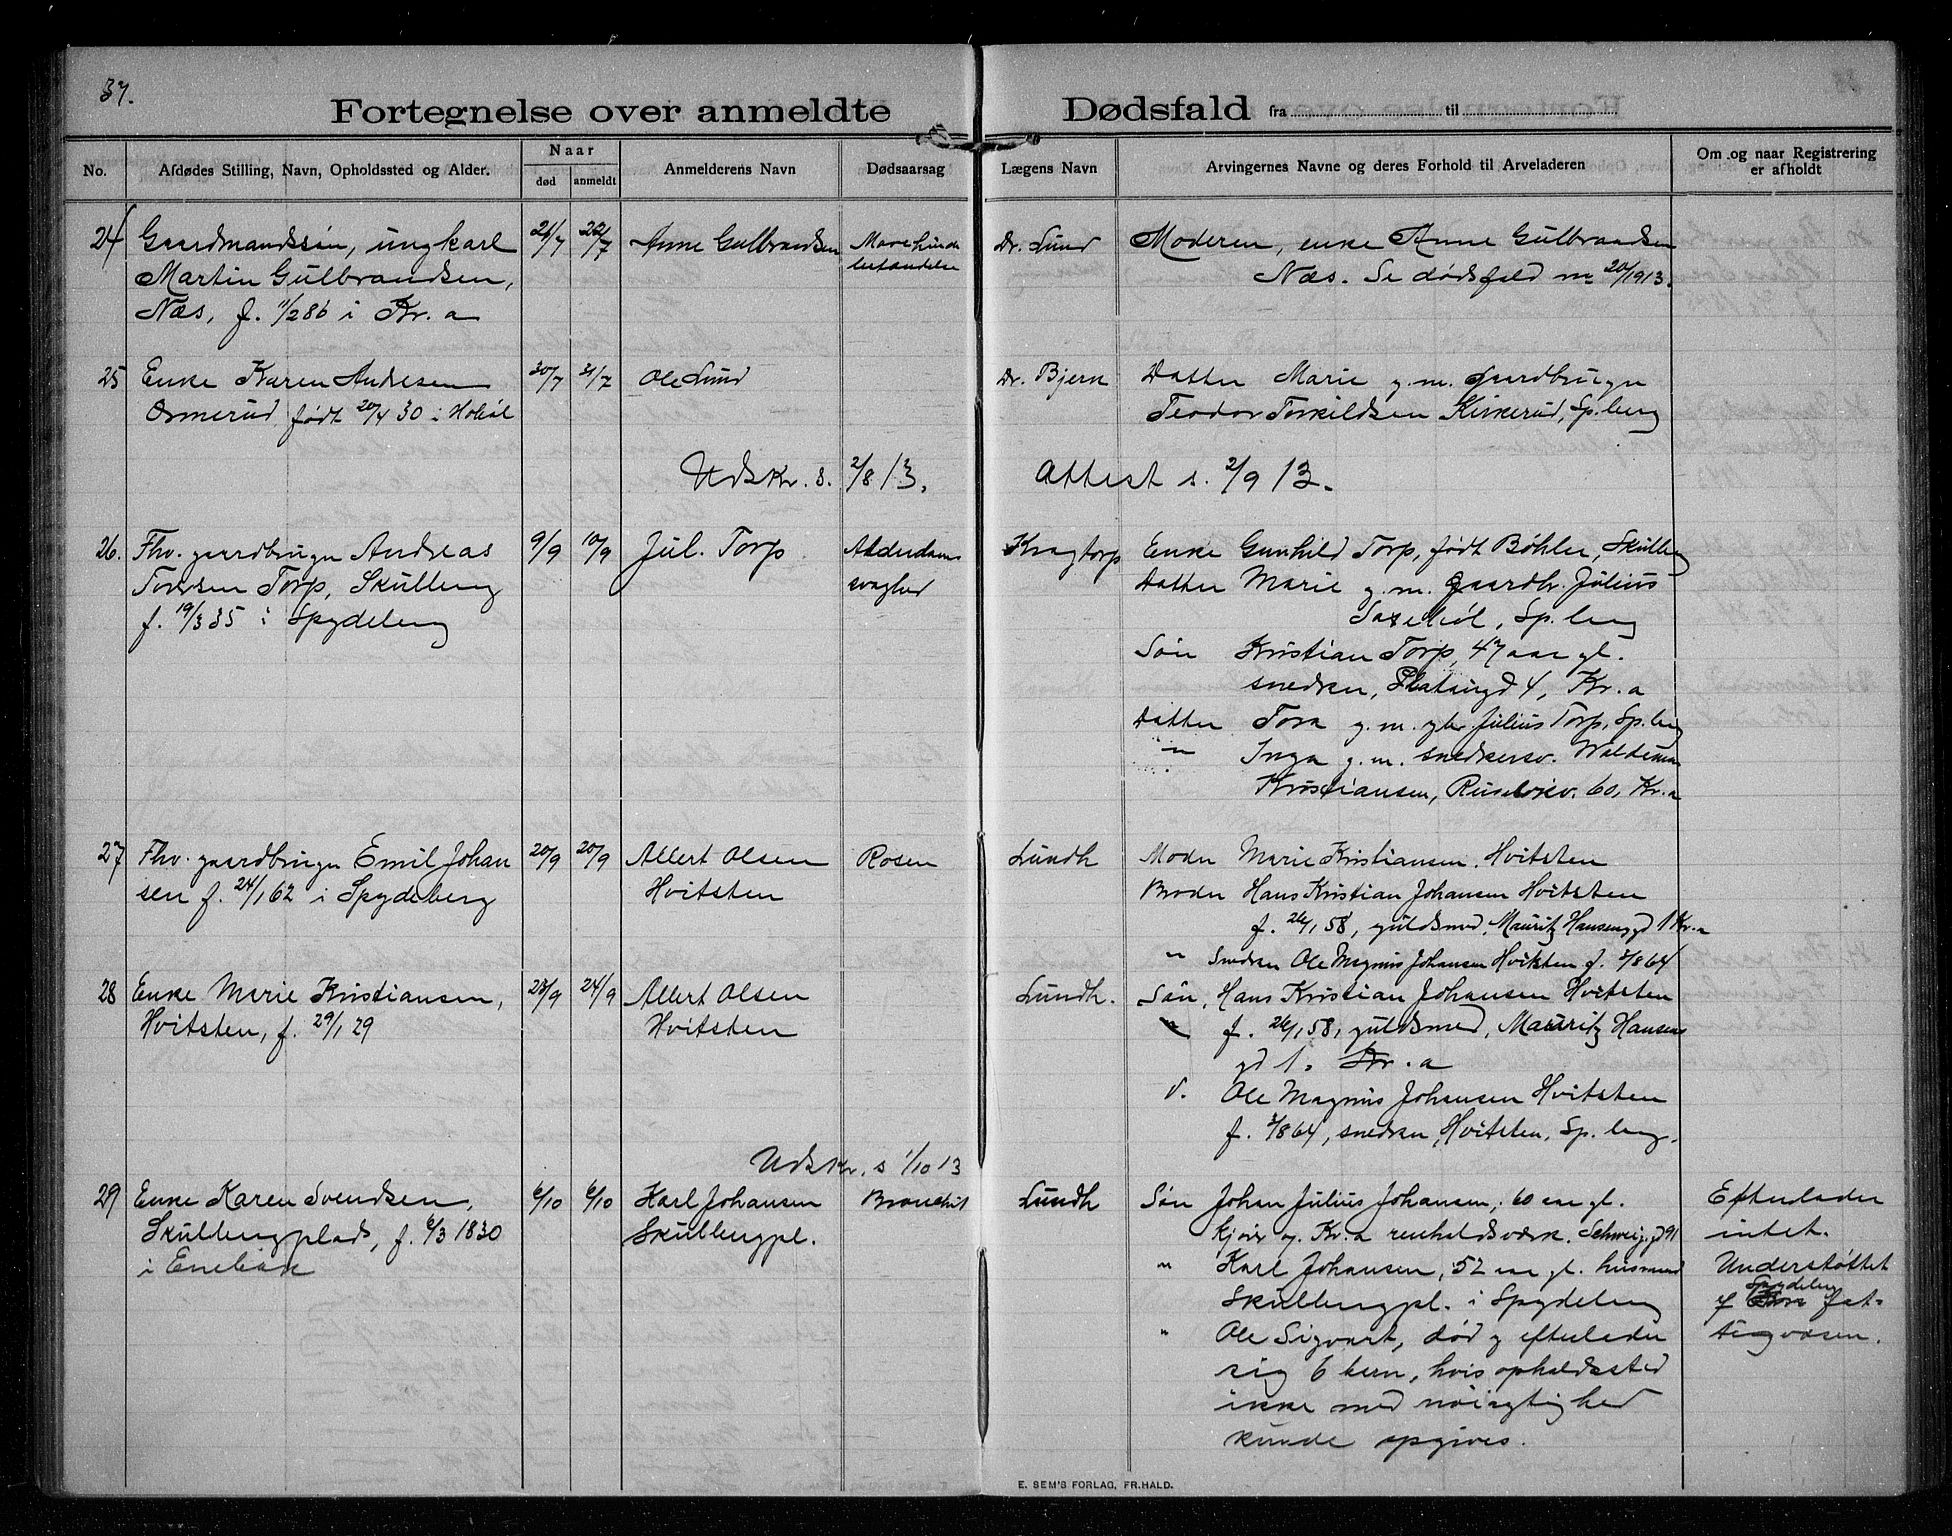 37.
Fortegnelse over anmeldte Dødsfald fra til
No.
Afdødes Stilling, Navn, Opholdssted og Alder.
Naar
død
anmeldt
Anmelderens Navn
Dødsaarsag
Lægens Navn
Arvingernes Navne og deres Forhold til Arveladeren
Om og naar Registrering
er afholdt
24
Gaardmandssøn, ungkarl
Martin Gulbrandsen,
Næs, f. 11/2 86 i Kr.a
21/7
22/7
Anne Gulbrandsen
Dr. Lund
Moderen, enke Anne Gulbrandsen
Næs. Se dødsfald nr 20/1913.
25
Enke Karen Andresen
Ormerud født 20/4 30 i Hobøl
20/7
21/7
Ole Lund
Dr. Bjern
Datter Marie g.m. gaardbruger
Teodor Torkildsen Kirkerud, Sp.berg
Udskr. s. 2/8 13.
Attest s. 2/9 13.
26.
Fhv. gaardbruger Andreas
Torersen Torp, Skulberg
f. 19/3 35 i Spydeberg
9/9
10/9
Jul. Torp
Alderdoms
svaghed
Kragtorp
Enke Gunhild Torp, født Bøhler, Skulberg
Datter Marie g.m. gaardbr. Julius
Saxebøl, Sp.berg
Søn Kristian Torp, 47 aar gl.
snedker, Platougd 4, Kr.a
Datter Tora g.m. gbr. Julius Torp, Sp.berg
" Inga g.m. snedkersv. Waldemar
Kristiansen, Ruseløkv. 60, Kr.a
27
Fhv. gaardbruger Emil Johan
sen f. 24/1 62 i Spydeberg
20/9
20/9
Allert Olsen
Hvitsten
Rosen
Lundh
Moder Marie Kristiansen, Hvitsten
Broder Hans Kristian Johansen Hvitsten
f. 26/1 58, guldsmed, Mauritz Hansensgd 1 Kr.a
" Snedker Ole Magnus Johansen Hvitsten f. 7/8 64
28
Enke Marie Kristiansen,
Hvitsten, f. 29/1 29
23/9
24/9
Allert Olsen
Hvitsten
Lundh.
Søn, Hans Kristian Johansen Hvitsten
" f. 26/1 58, guldsmed, Mauritz Hansens
gd 1. Kr.a
" Ole Magnus Johansen Hvitsten
f. 7/8 64, snedker, Hvitsten, Sp.berg.
Udskr. s 1/10 13
29
Enke Karen Svendsen,
Skulbergplads, f. 6/3 1830
i Enebak
6/10
6/10
Karl Johansen
Skulbergpl.
Bronchit
Lundh
Søn Johan Julius Johansen, 60 aar gl.
Kjører og. Kr.a renholdsværk. Schweig.gd 91
" Karl Johansen, 52 aar gl. husmand
Skulbergpl. i Spydeberg
" Ole Sigvart, død og efterlader
sig 6 bern, hvis opholdssted
ikke med nøiagtighed
kunde opgives.
Efterlader
intet.
Understøttet
af Spydeberg fat-
tigvæsen.
E. SEM'S FORLAG, FR.HALD.